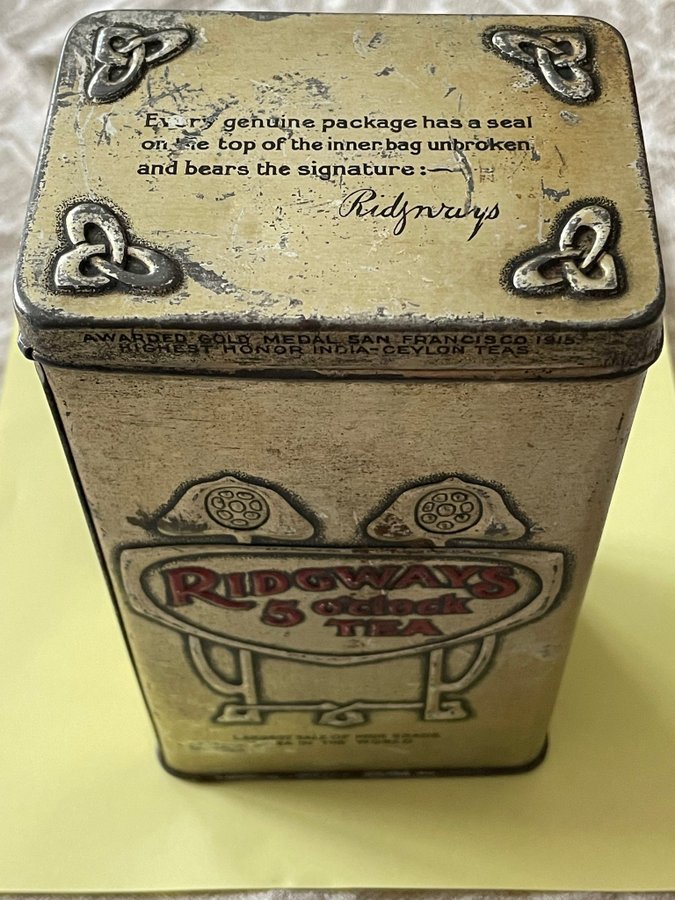 Every genuine package has a seal
on the top of the inner bag unbroken
and bears the signature:—
Ridgways
AWARDED GOLD MEDAL SAN FRANCISCO 1915
HIGHEST HONOR INDIA-CEYLON TEAS
RIDGWAYS
5 o'clock
TEA
LARGEST SALE OF HIGH GRADE
TEA IN THE WORLD